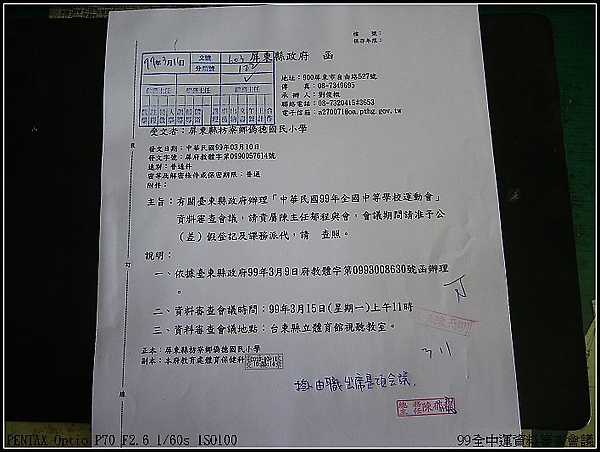 檔　　號：
保存年限：
屏東縣政府　函
99年3月11日
文號
603
分類號
122
地址：900屏東市自由路527號
傳　　真：08-7349695
承 辦 人：劉俊楓
聯絡電話：08-7320415#3653
電子信箱：a270071@oa.pthg.gov.tw
受文者：屏東縣枋寮鄉僑德國民小學
發文日期：中華民國99年03月10日
發文字號：屏府教體字第0990057614號
速別：普通件
密等及解密條件或保密期限：普通
附件：
主旨：有關臺東縣政府辦理「中華民國99年全國中等學校運動會」
資料審查會議，請貴屬陳主任郁程與會，會議期間請准予公
（差）假登記及課務派代，請　查照。
說明：
一、依據臺東縣政府99年3月9日府教體字第0993008630號函辦理
。
二、資料審查會議時間：99年3月15日(星期一)上午11時
三、資料審查會議地點：台東縣立體育館視聽教室。
正本：屏東縣枋寮鄉僑德國民小學
副本：本府教育處體育保健科
訂
線
由職出席是項會議
PENTAX Optio P70 F2.6 1/60s ISO100
99全中運資料審查會議